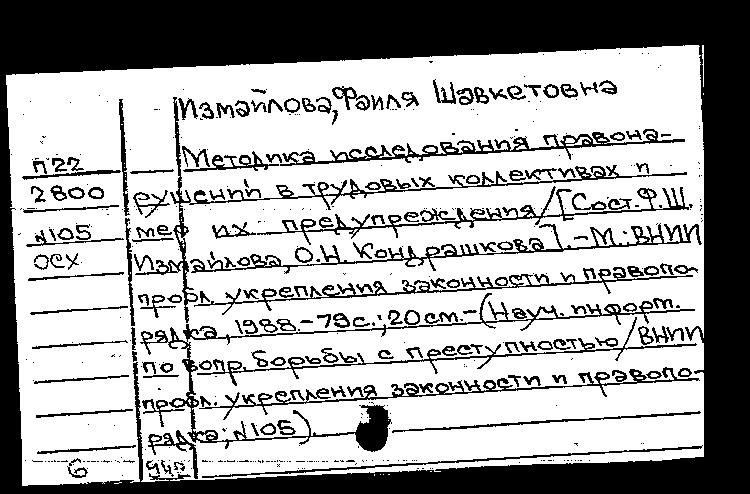 Измайлова, Фаиля Шавкетовна
П22 Методика исследования правона-
2800 рушений в трудовых коллективах и
N105 мер их предупреждения/[Сост. Ф.Ш.
ОСХ Измайлова, О.Н. Кондрашкова].-М.: ВНИИ
пробл. укрепления законности и правопо-
рядка, 1988.-79с.; 20см.-(Науч. информ.
по вопр. борьбы с преступностью/ВНИИ
пробл. укрепления законности и правопо-
рядка; N105).
6